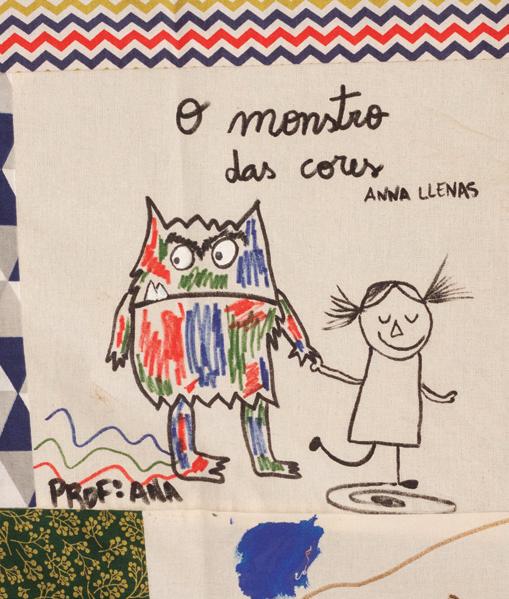 O monstro
das cores
ANNA LLENAS
PROFª: ANA